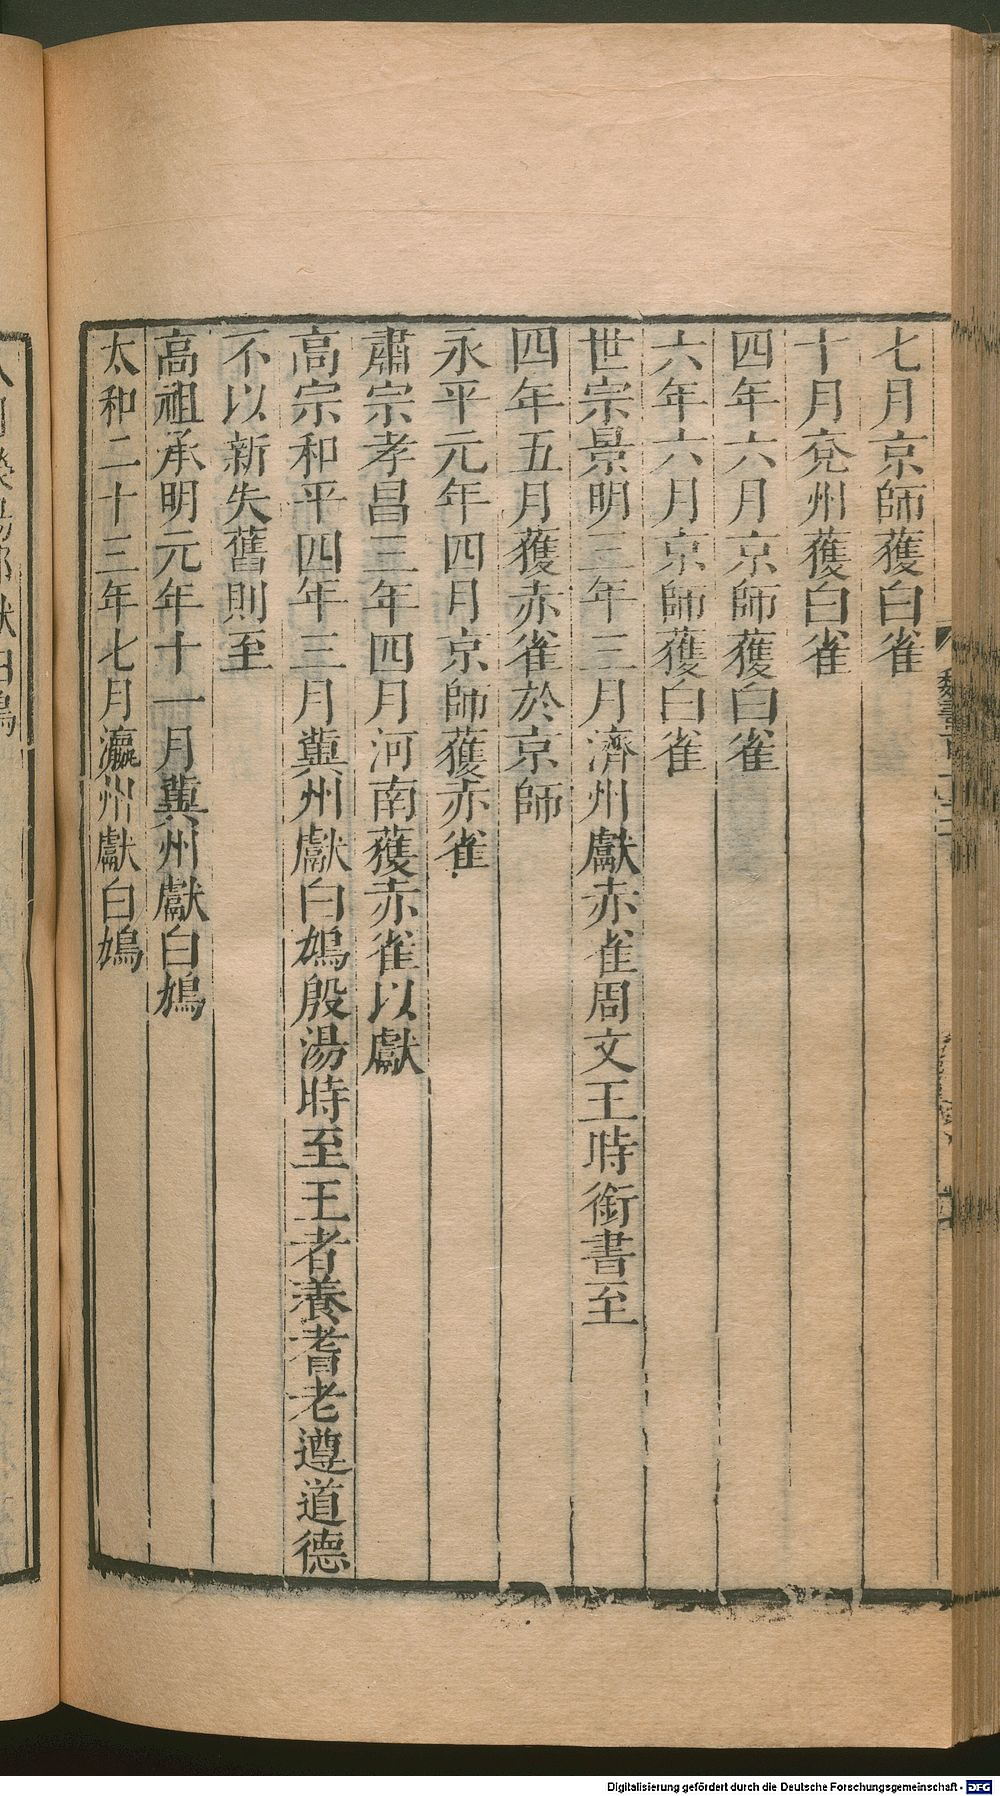 七月京師獲白雀
十月兗州獲白雀
四年六月京師獲白雀
六年六月京師獲白雀
世宗景明三年三月濟州獻赤雀周文王時銜書至
四年五月獲赤雀於京師
永平元年四月京師獲赤雀
肅宗孝昌三年四月河南獲赤雀以獻
高宗和平四年三月冀州獻白鳩殷湯時至王者養耆老遵道德
不以新失舊則至
高祖承明元年十一月冀州獻白鳩
太和二十三年七月瀛州獻白鳩
Digitalisierung gefördert durch die Deutsche Forschungsgemeinschaft - DFG